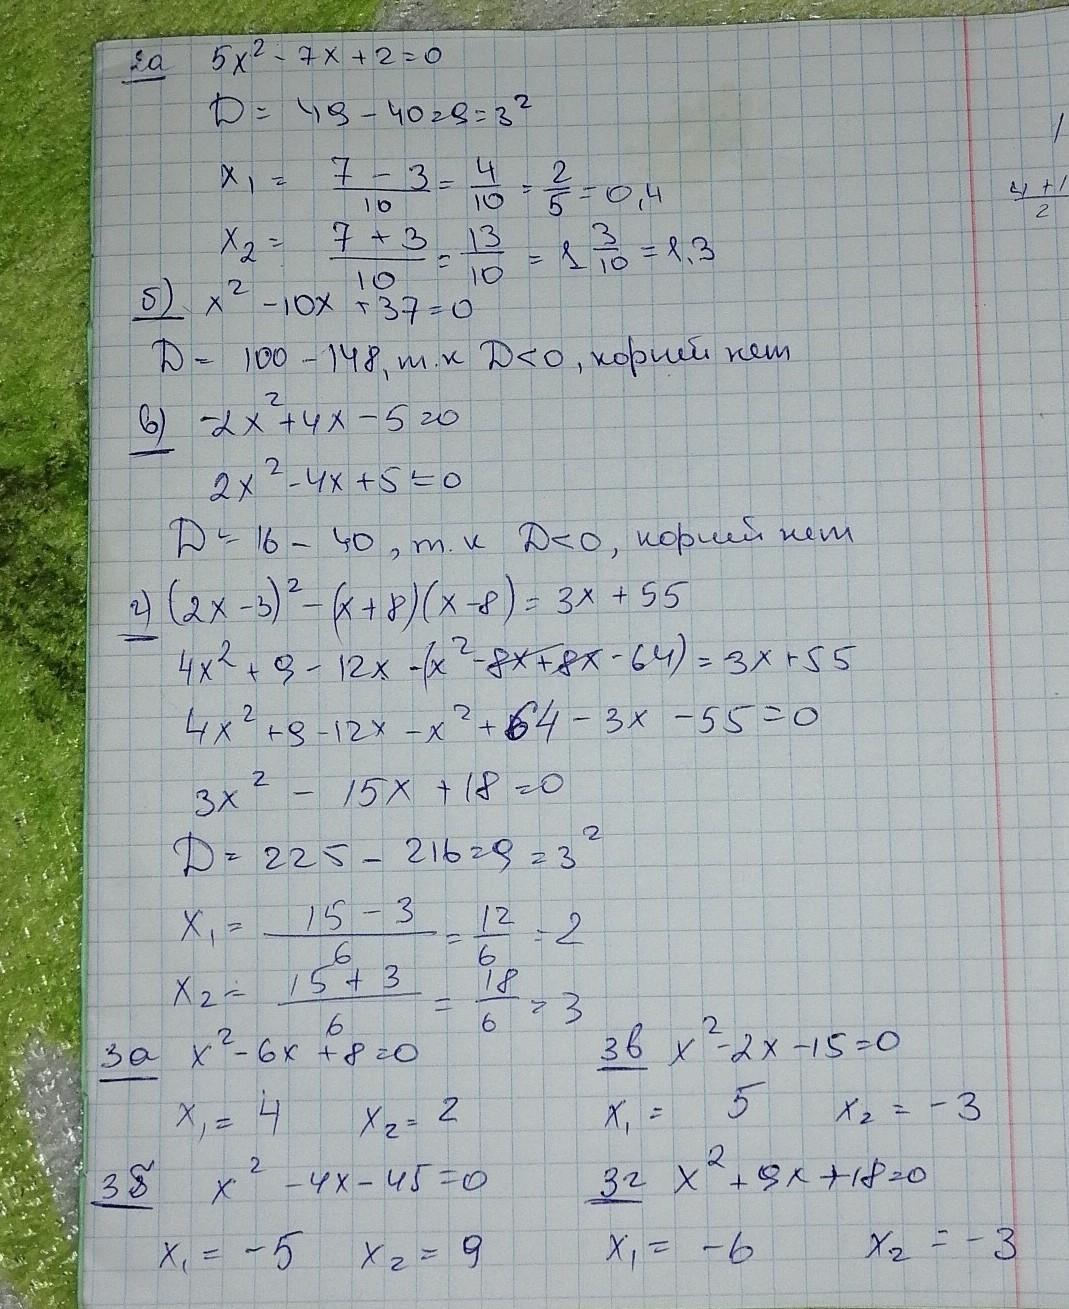 2а 5x² - 7x + 2 = 0
D = 49 - 40 = 9 = 3²
x₁ = (7 - 3)/10 = 4/10 = 2/5 = 0,4
x₂ = (7 + 3)/10 = 13/10 = 1 3/10 = 1,3
б) x² - 10x + 37 = 0
D = 100 - 148, т.к D < 0, корней нет
в) -2x² + 4x - 5 = 0
2x² - 4x + 5 = 0
D = 16 - 40, т.к D < 0, корней нет
г) (2x - 3)² - (x + 8)(x - 8) = 3x + 55
4x² + 9 - 12x - (x² - 8x + 8x - 64) = 3x + 55
4x² + 9 - 12x - x² + 64 - 3x - 55 = 0
3x² - 15x + 18 = 0
D = 225 - 216 = 9 = 3²
x₁ = (15 - 3)/6 = 12/6 = 2
x₂ = (15 + 3)/6 = 18/6 = 3
3а x² - 6x + 8 = 0
x₁ = 4 x₂ = 2
3б x² - 4x - 45 = 0
x₁ = -5 x₂ = 9
3в x² - 2x - 15 = 0
x₁ = 5 x₂ = -3
3г x² + 9x + 18 = 0
x₁ = -6 x₂ = -3